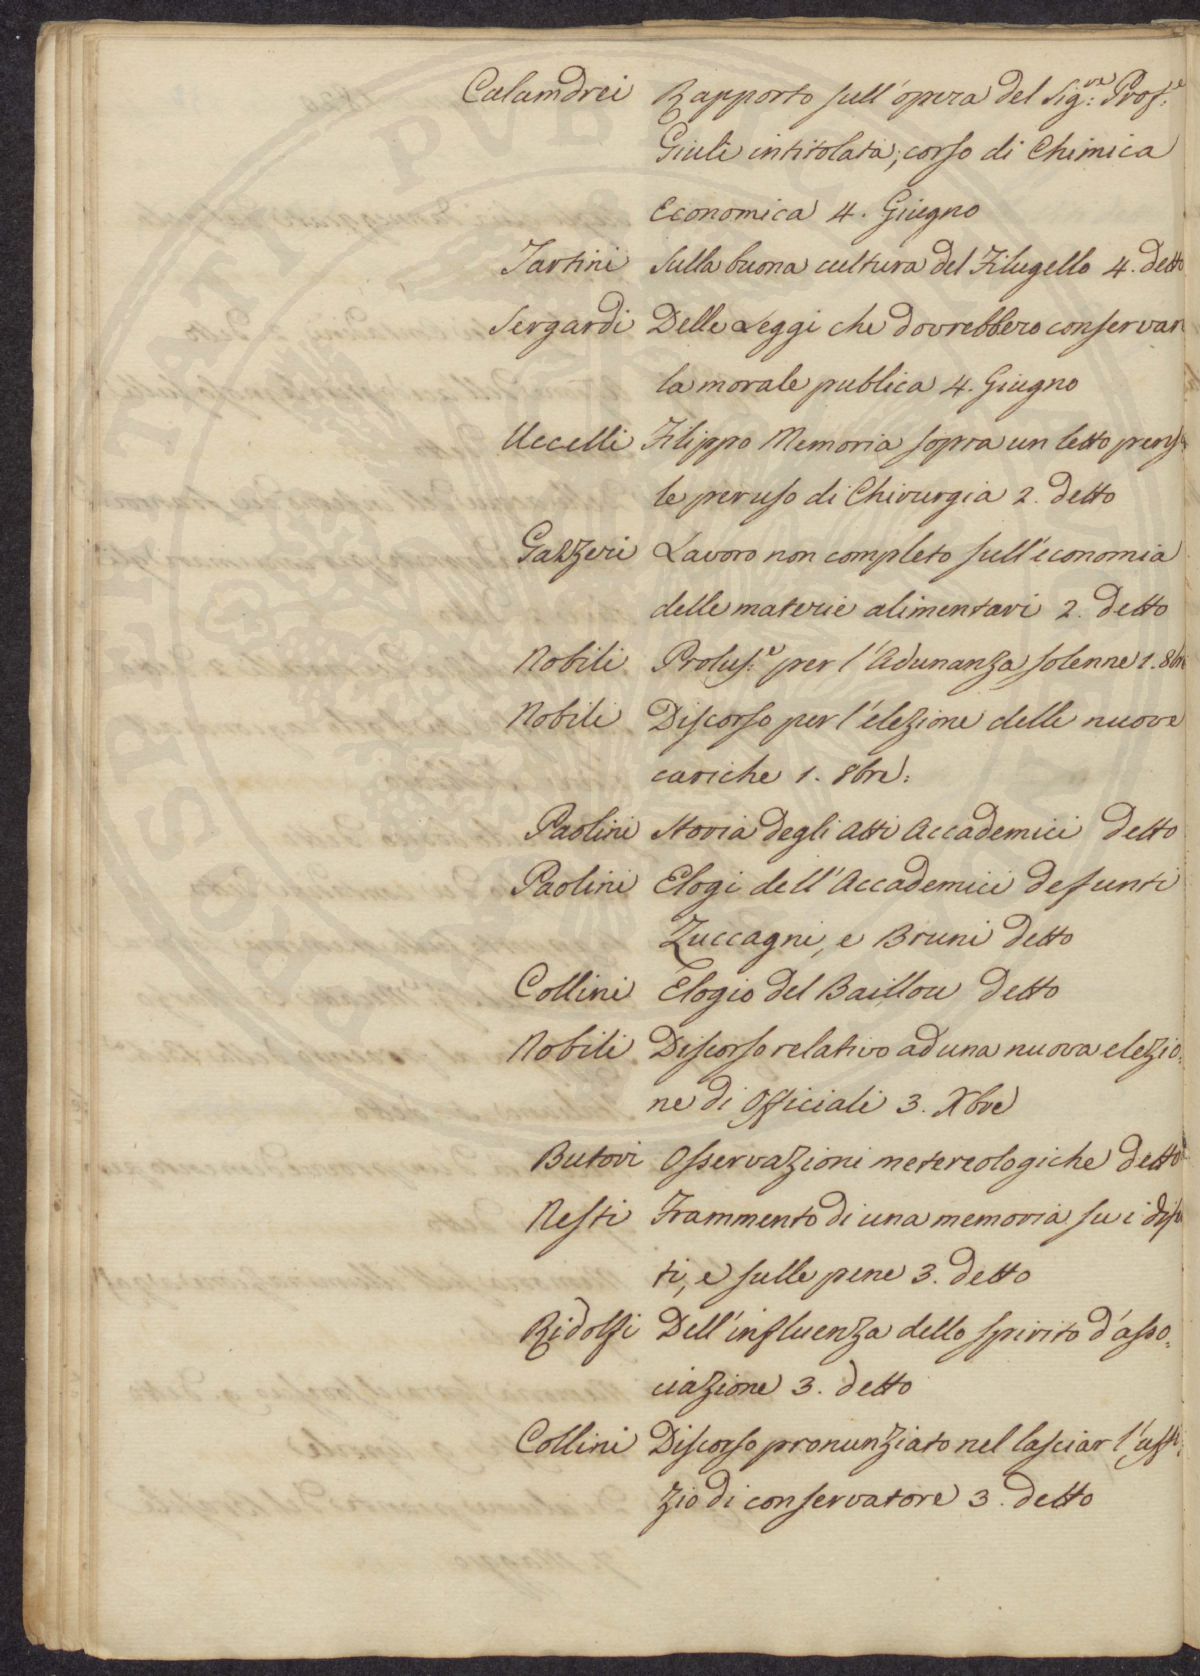 Calamdrei Rapporto sull'opera del Sig.re Prof.e
Giuli intitolata; corso di Chimica
Economica 4. Giugno
Tartini Sulla buona cultura del Filugello 4. detto
Sergardi Delle Leggi che dovrebbero conservar
la morale publica 4. Giugno
Uccelli Filippo Memoria sopra un letto pensi
le per uso di Chirurgia 2. detto
Gazzeri Lavoro non completo sull'economia
delle materie alimentari 2. detto
Nobili Prolus.e per l'Adunanza solenne 1. 8bre
Nobili Discorso per l'elezione delle nuove
cariche 1. 8bre:
Paolini Storia degli Atti Accademici detto
Paolini Elogi dell'Accademici defunti
Zuccagni, e Bruni detto
Collini Elogio del Baillou detto
Nobili Discorso relativo ad una nuova elezio.
ne di Officiali 3. Xbre
Butori Osservazioni metereologiche detto
Nesti Frammento di una memoria su i
ti, e sulle pene 3. detto
Ridolfi Dell'influenza dello spirito d'asso.
ciazione 3. detto
Collini Discorso pronunziato nel lasciar l'uffi.
zio di conservatore 3. detto